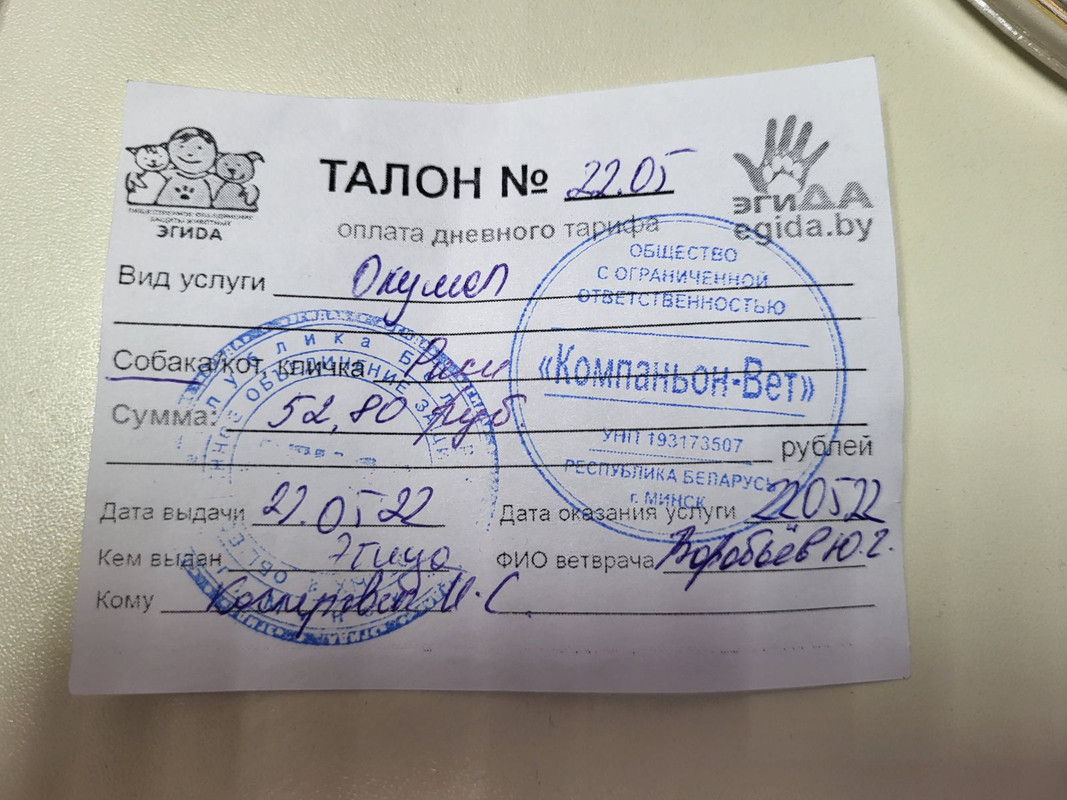 ОБЩЕСТВЕННОЕ ОБЪЕДИНЕНИЕ
ЗАЩИТЫ ЖИВОТНЫХ
ЭГИДА
ТАЛОН № 22.05
эгиДА
egida.by
оплата дневного тарифа
Вид услуги
Собака/кот, кличка
Сумма: 52,80 руб.
рублей
Дата выдачи 22.05 22
Дата оказания услуги 22 05 22
Кем выдан Эгида
ФИО ветврача Воробьёв Ю.Г.
Кому
ОБЩЕСТВО
С ОГРАНИЧЕННОЙ
ОТВЕТСТВЕННОСТЬЮ
«Компаньон-Вет»
УНП 193173507
РЕСПУБЛИКА БЕЛАРУСЬ
г. МИНСК